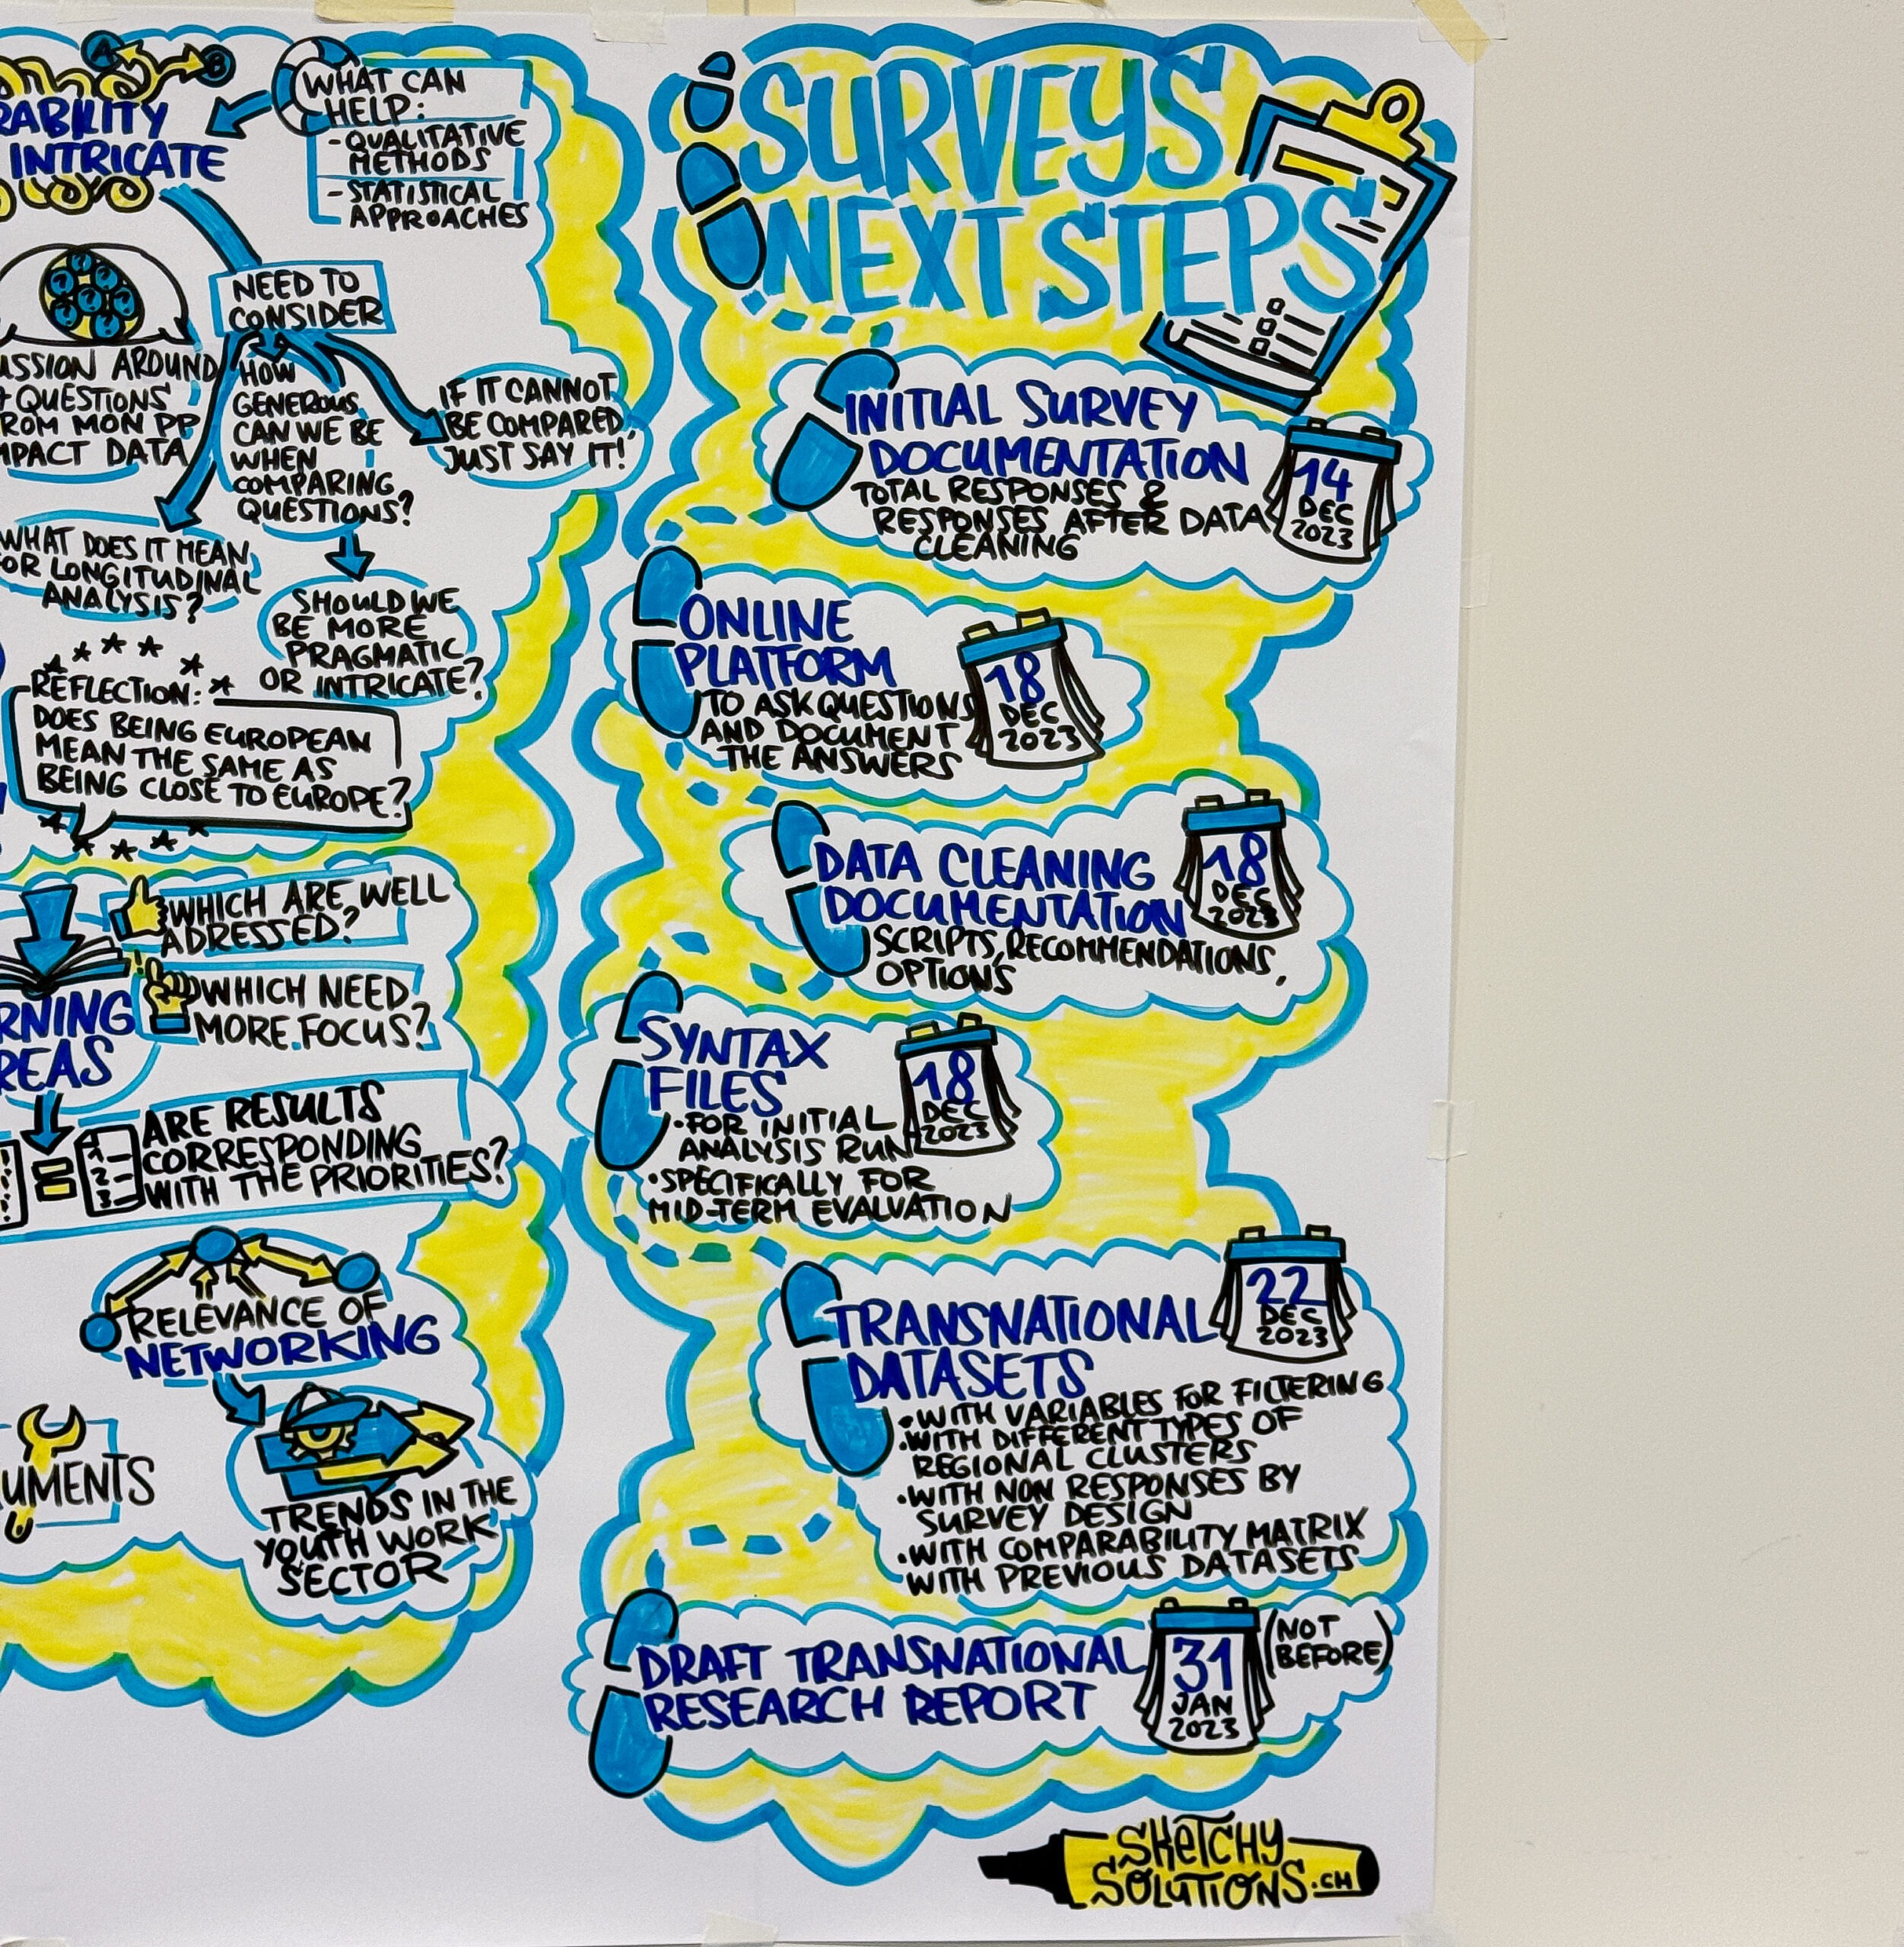 A
B
INTRICATE
WHAT CAN
HELP:
- QUALITATIVE
METHODS
- STATISTICAL
APPROACHES
NEED TO
CONSIDER
AROUND
QUESTIONS
MON PP
DATA
HOW
GENEROUS
CAN WE BE
WHEN
COMPARING
QUESTIONS?
IF IT CANNOT
BE COMPARED,
JUST SAY IT!
WHAT DOES IT MEAN
FOR LONGITUDINAL
ANALYSIS?
SHOULD WE
BE MORE
PRAGMATIC
OR INTRICATE?
REFLECTION:
DOES BEING EUROPEAN
MEAN THE SAME AS
BEING CLOSE TO EUROPE?
WHICH ARE WELL
ADRESSED?
WHICH NEED
MORE FOCUS?
ARE RESULTS
CORRESPONDING
WITH THE PRIORITIES?
1
2
3
RELEVANCE OF
NETWORKING
TRENDS IN THE
YOUTH WORK
SECTOR
SURVEYS
NEXT STEPS
INITIAL SURVEY
DOCUMENTATION
TOTAL RESPONSES &
RESPONSES AFTER DATA
CLEANING
14
DEC
2023
ONLINE
PLATFORM
TO ASK QUESTIONS
AND DOCUMENT
THE ANSWERS
18
DEC
2023
DATA CLEANING
DOCUMENTATION
SCRIPTS, RECOMMENDATIONS,
OPTIONS
18
DEC
2023
SYNTAX
FILES
• FOR INITIAL
ANALYSIS RUN
• SPECIFICALLY FOR
MID-TERM EVALUATION
18
DEC
2023
TRANSNATIONAL
DATASETS
• WITH VARIABLES FOR FILTERING
• WITH DIFFERENT TYPES OF
REGIONAL CLUSTERS
• WITH NON RESPONSES BY
SURVEY DESIGN
• WITH COMPARABILITY MATRIX
WITH PREVIOUS DATASETS
22
DEC
2023
DRAFT TRANSNATIONAL
RESEARCH REPORT
31
JAN
2023
(NOT
BEFORE)
SKETCHY
SOLUTIONS.CH